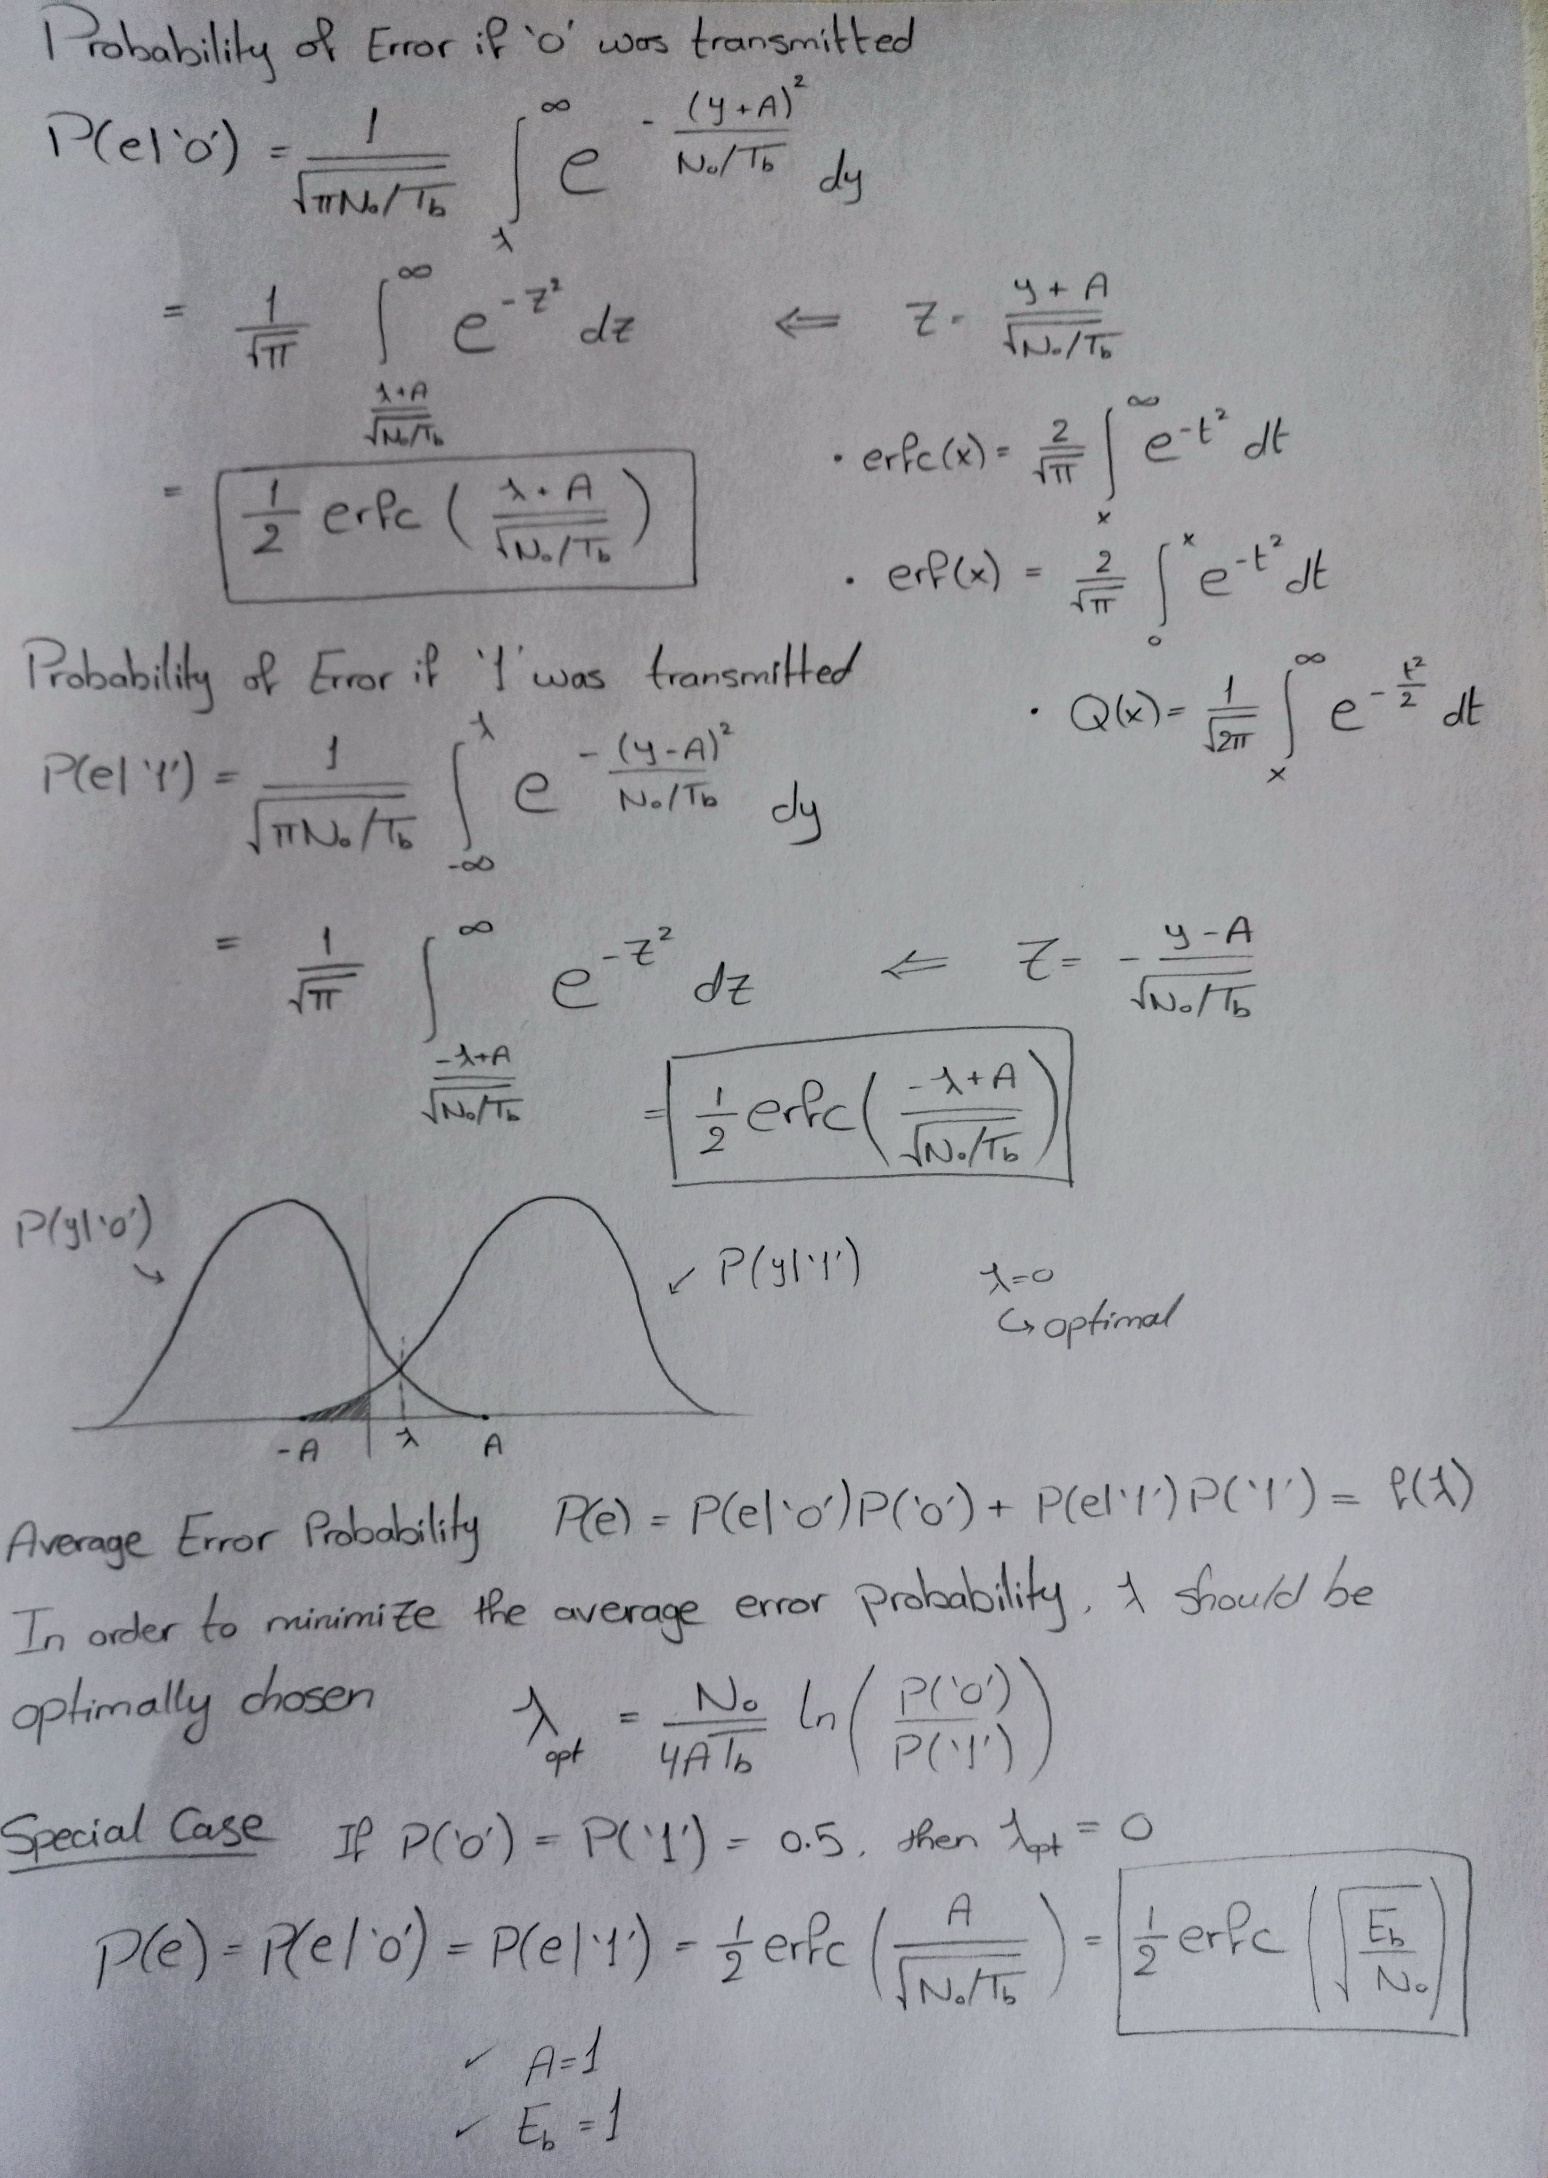 Probability of Error if '0' was transmitted
P(e|'0') = 1/√(πN₀/T_b) ∫_λ^∞ e^(-(y+A)²/(N₀/T_b)) dy
= 1/√π ∫_((λ+A)/√(N₀/T_b))^∞ e^(-z²) dz ⇐ z = (y+A)/√(N₀/T_b)
= 1/2 erfc((λ+A)/√(N₀/T_b))
• erfc(x) = 2/√π ∫_x^∞ e^(-t²) dt
• erf(x) = 2/√π ∫_0^x e^(-t²) dt
• Q(x) = 1/√(2π) ∫_x^∞ e^(-t²/2) dt
Probability of Error if '1' was transmitted
P(e|'1') = 1/√(πN₀/T_b) ∫_(-∞)^λ e^(-(y-A)²/(N₀/T_b)) dy
= 1/√π ∫_((-λ+A)/√(N₀/T_b))^∞ e^(-z²) dz ⇐ z = -(y-A)/√(N₀/T_b)
= 1/2 erfc((-λ+A)/√(N₀/T_b))
P(y|'0')
P(y|'1')
λ=0
↳ optimal
-A λ A
Average Error Probability P(e) = P(e|'0')P('0') + P(e|'1')P('1') = f(λ)
In order to minimize the average error probability, λ should be
optimally chosen λ_opt = N₀/(4AT_b) ln(P('0')/P('1'))
Special Case If P('0') = P('1') = 0.5, then λ_opt = 0
P(e) = P(e|'0') = P(e|'1') = 1/2 erfc(A/√(N₀/T_b)) = 1/2 erfc(√(E_b/N₀))
✓ A=1
✓ E_b=1